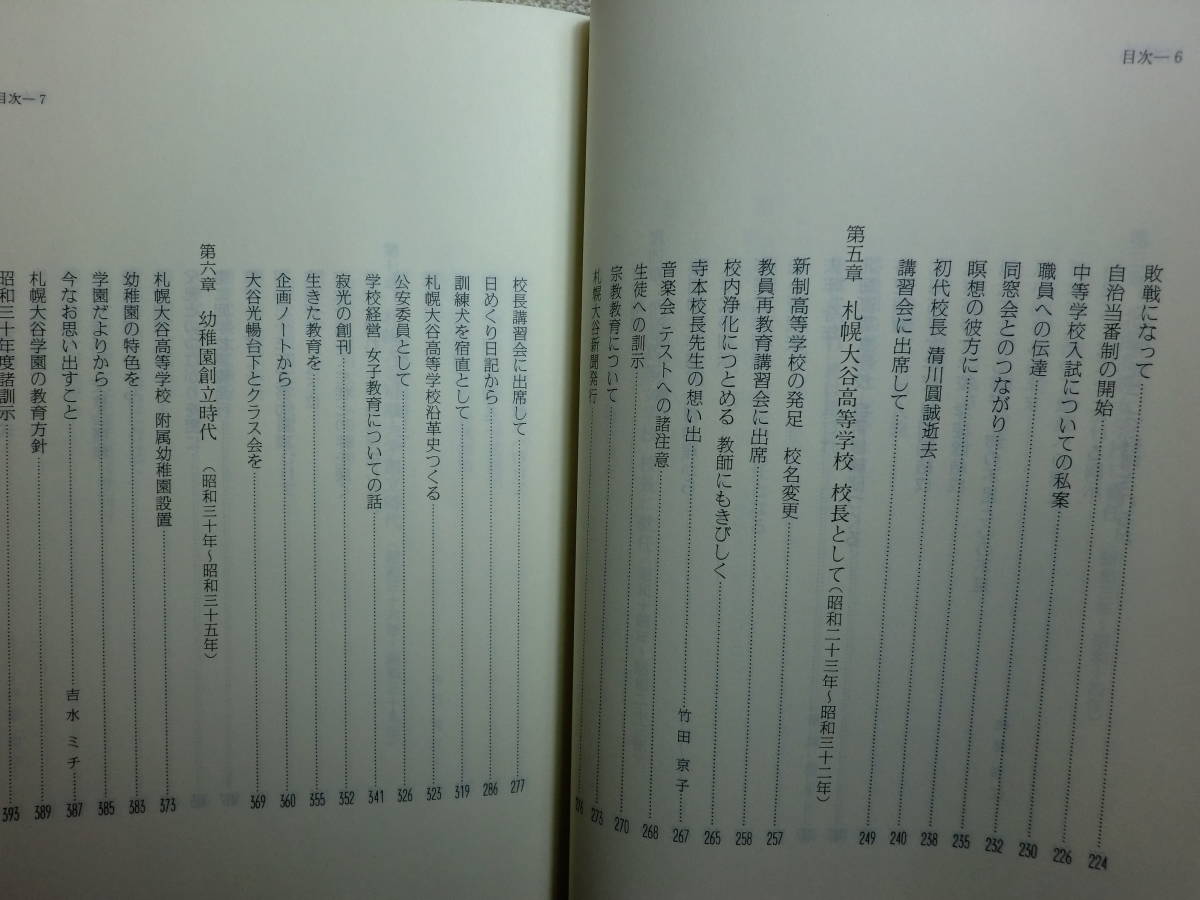 目次—6
敗戦になって 224
自治当番制の開始 226
中等学校入試についての私案 230
職員への伝達 232
同窓会とのつながり 235
瞑想の彼方に 238
初代校長 清川圓誠逝去 240
講習会に出席して 249
第五章 札幌大谷高等学校 校長として(昭和二十三年~昭和三十二年)
新制高等学校の発足 校名変更 257
教員再教育講習会に出席 258
校内浄化につとめる 教師にもきびしく 265
寺本校長先生の想い出 竹田京子 267
音楽会 テストへの諸注意 268
生徒への訓示 270
宗教教育について 273
札幌大谷新聞発行
目次—7
校長講習会に出席して 277
日めくり日記から 286
訓練犬を宿直として 319
札幌大谷高等学校沿革史つくる 323
公安委員として 326
学校経営 女子教育についての話 341
寂光の創刊 352
生きた教育を 355
企画ノートから 360
大谷光暢台下とクラス会を 369
第六章 幼稚園創立時代 (昭和三十年~昭和三十五年)
札幌大谷高等学校 附属幼稚園設置 373
幼稚園の特色を 383
学園だよりから 385
今なお思い出すこと 吉水ミチ 387
札幌大谷学園の教育方針 389
昭和三十年度諸訓示 393